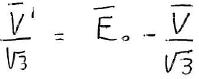 V̅'/√3 = E̅₀ - V̅/√3